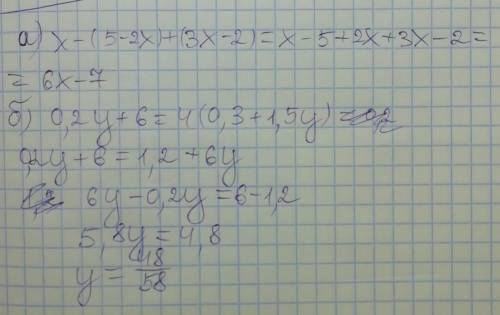 а) x-(5-2x)+(3x-2)=x-5+2x+3x-2=
=6x-7
б) 0,2y+6=4(0,3+1,5y)
0,2y+6=1,2+6y
6y-0,2y=6-1,2
5,8y=4,8
y=48/58